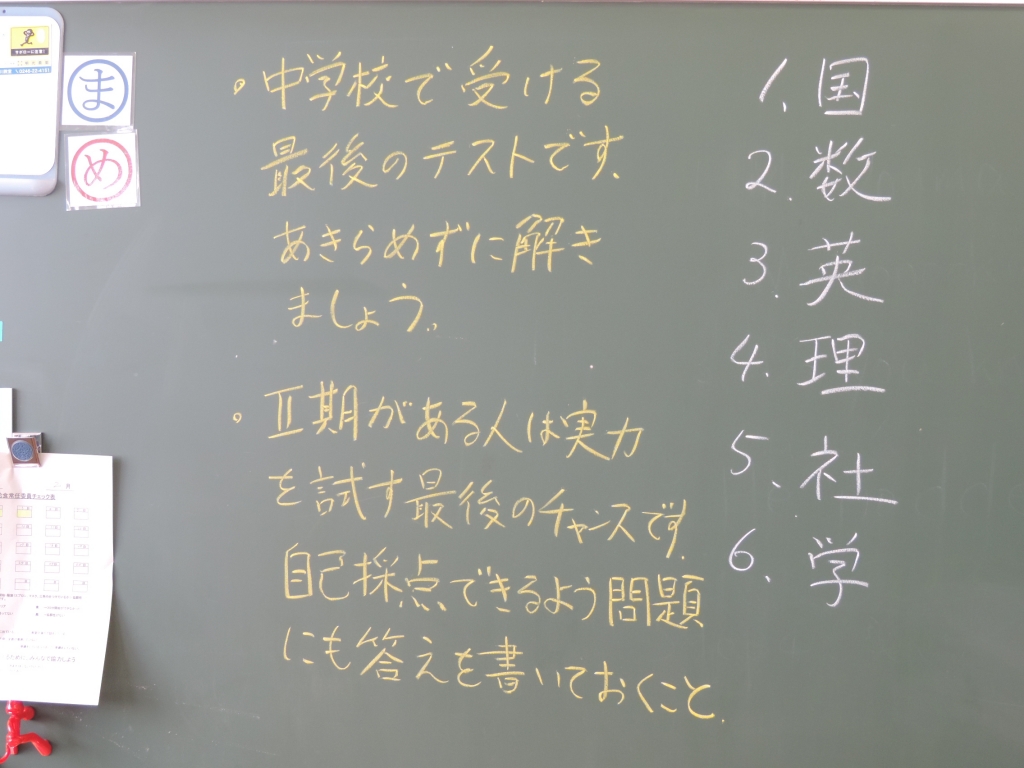 ・中学校で受ける
最後のテストです。
あきらめずに解き
ましょう。
・Ⅱ期がある人は実力
を試す最後のチャンスです。
自己採点できるよう問題
にも答えを書いておくこと。
1. 国
2. 数
3. 英
4. 理
5. 社
6. 学
ま
め